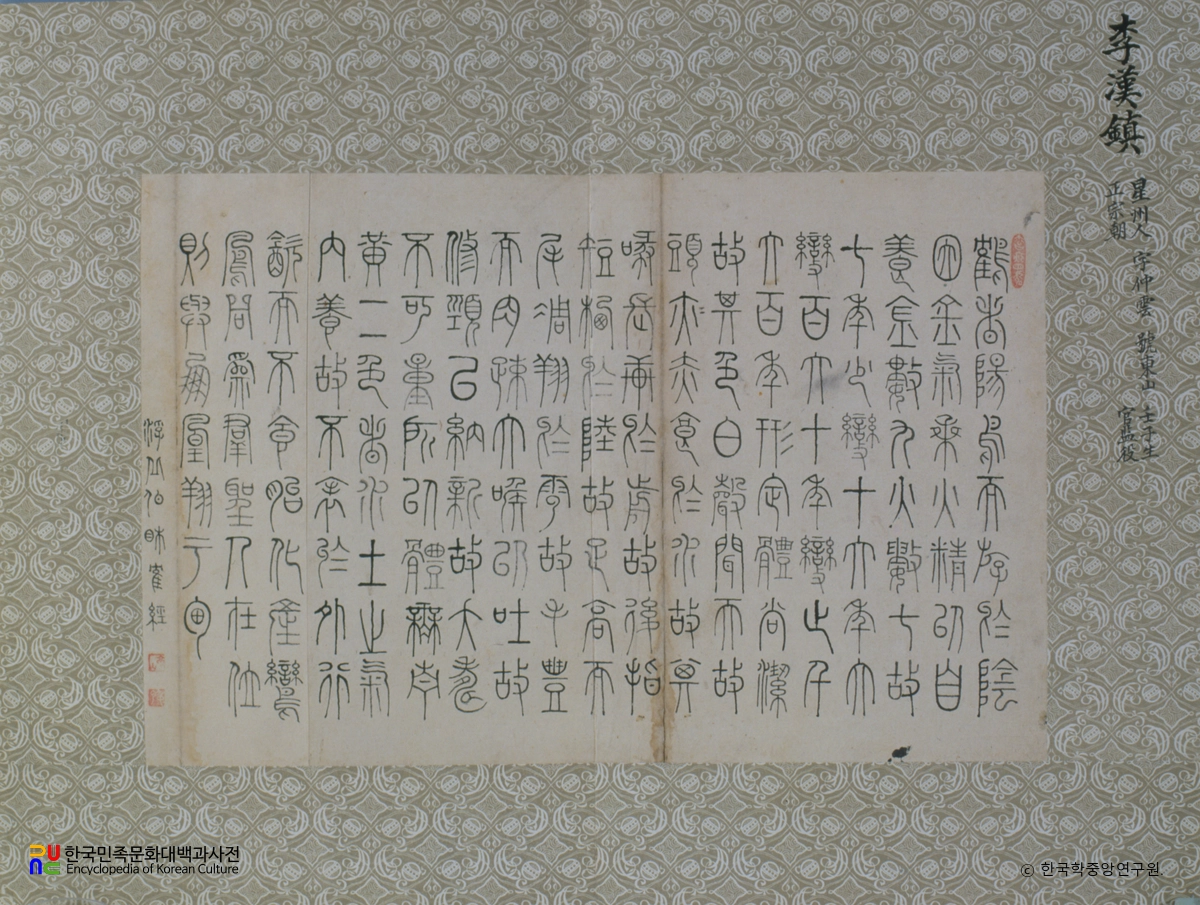 李漢鎭
星州人 字仲雲 號東山 壬子生
正宗朝 官監役
鶴者陽鳥而游於陰
因金氣乘火精以自
養金數九火數七故
七年少變十六年大
變百六十年變止千
六百年形定體尚潔
故其色白聲聞天故
頭赤食於水故其
喙長軒於前故後指
短棲於陸故足高而
尾凋翔於雲故毛豐
而肉疎大喉以吐故
修頸以納新故大壽
不可量所以體無青
黃二色者木土之氣
內養故不表於外行
飲而不食胎化產鸞
鳳同爲羣聖人在位
則與鳳凰翔于甸
浮丘伯相隺經
한국민족문화대백과사전
Encyclopedia of Korean Culture
© 한국학중앙연구원